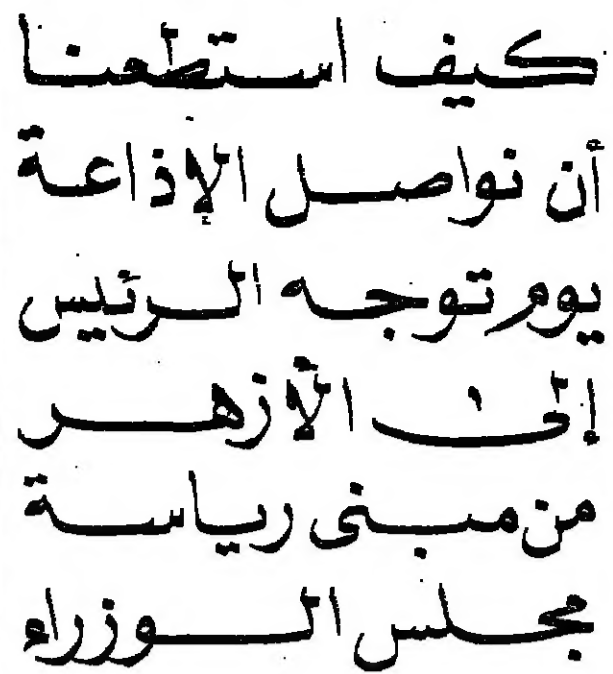 كيف استطعنا
أن نواصل الإذاعة
يوم توجه الرئيس
إلى الأزهر
من مبنى رياسة
مجلس الوزراء